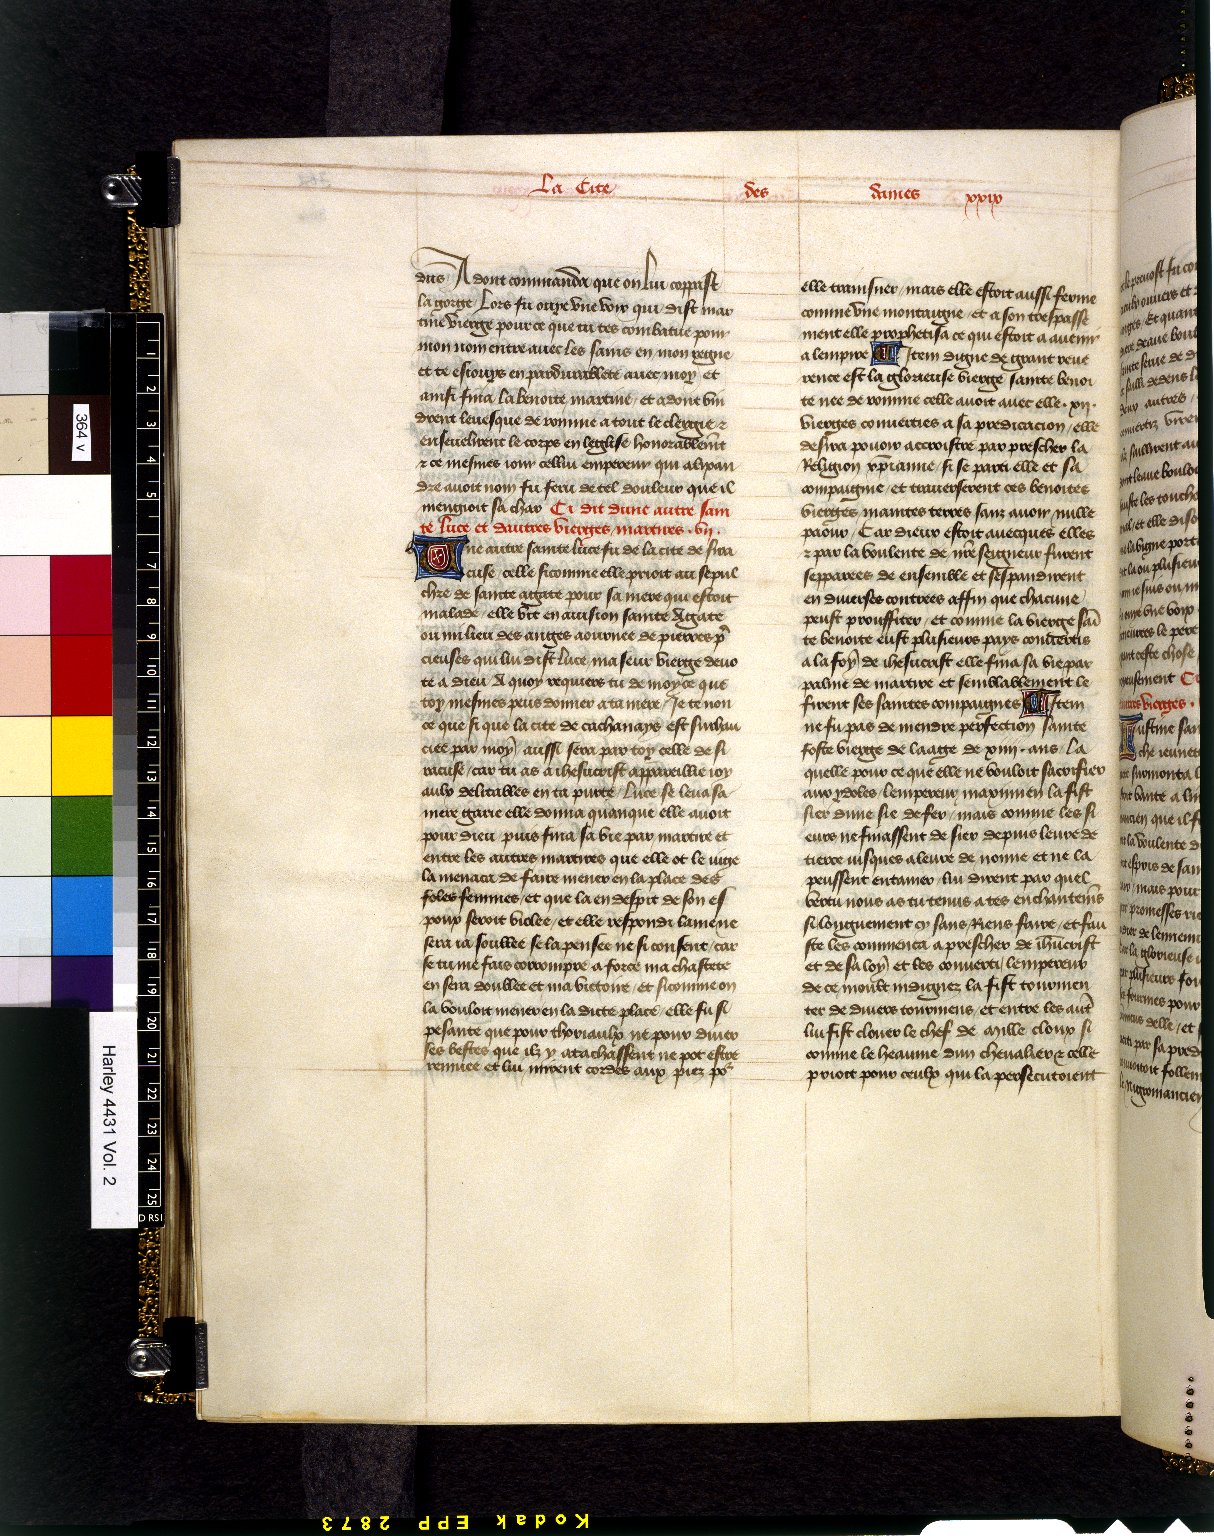 La Cite des dames xxix
dens Adont commanda que on lui coppast
la gorge Lors fu ouye vne voix qui dist mar
tine vierge pource que tu tes combatue pour
mon nom entre auec les sains en mon regne
et te esiouys en pardurablete auec moy et
ainsi fina la benoite martine et adont vin
drent leuesque de romme a tout le clergie ⁊
enseuelirent le corps en leglise honorablemēt
⁊ ce mesmes iour cellui empereur qui alixan
dre auoit nom fu feru de tel douleur que il
mengioit sa char Ci dit dune autre sain
te luce et dautres vierges martires .vij.
Une autre sainte luce fu de la cite de sira
cuse celle si comme elle prioit au sepul
chre de saincte agate pour sa mere que estoit
malade elle vit en auision sainte Agate
ou milieu des anges aournee de pierres p̄
cieuses qui lui dist Luce ma seur vierge deuo
te a dieu A quoy requiers tu de moy ce que
toy mesmes peus donner a ta mere Je te non
ce que si que la cite de cathanays est
ciee par moy aussi sera par toy celle de si
racuse car tu as a ihesucrist appareillie ioy
aulx delitables en ta purte Luce se leua sa
mere garie elle donna quanque elle auoit
pour dieu puis fina sa vie par martire et
entre les autres martires que elle ot le iuge
la menaca de faire mener en la place des
foles femmes et que la en despit de son es
poux seroit violee et elle respondi lame ne
sera ia soullee se la pensee ne si consent car
se tu me fais corrompre a force ma chastete
en sera doublee et ma victoire et si comme on
la vouloit mener en la dicte place elle fu si
pesante que pour thoriaulx ne pour diuer
ses bestes que ilz y atachassent ne pot estre
remuee et lui mirent cordes aux piez po
elle trainsner mais elle estoit aussi ferme
comme vne montaigne et a son trespasse
ment elle prophetisa ce qui estoit a auenir
a lempire Item digne de grant reue
rence est la glorieuse vierge sainte benoi
te nee de romme celle auoit auec elle .xij.
vierges conuerties a sa predicacion elle
desira pouoir accroistre par prescher la
Religion xp̄ianne si se parti elle et sa
compaignie et trauerserent ces benoites
vierges maintes terres sanz auoir nulle
paour Car dieux estoit auecques elles
⁊ par la voulente de nr̄e seigneur furent
sepparees de ensemble et sespandirent
en diuerses contrees affin que chacune
peust prouffiter et comme la vierge sai
te benoite eust plusieurs pays conuertis
a la foy de ihesucrist elle fina sa vie par
palme de martire et semblablement le
firent ses saintes compaignes Item
ne fu pas de mendre perfection sainte
foste vierge de laage de xiiij. ans La
quelle pour ce que elle ne vouloit sacrifier
aux ydoles lempereur maximien la fist
sier dune sie de fer mais comme les si
eurs ne finassent de sier depuis leure de
tierce iusques a leure de nonne et ne la
peussent entamer lui dirent par quel
vertu nous as tu tenus a tes enchantemēs
si longuement cy sans Riens faire et fau
ste les commenca a prescher de ihūcrist
et de sa loy et les conuerti lempereur
de ce moult indignez la fist tourmen
ter de diuers tourmens et entre les aut̄
lui fist clouer le chef de mille cloux si
comme le heaume dun cheualier ⁊ celle
prioit pour ceulx qui la persecutoient
364 v
Harley 4431 Vol. 2
Kodak EPP 2873